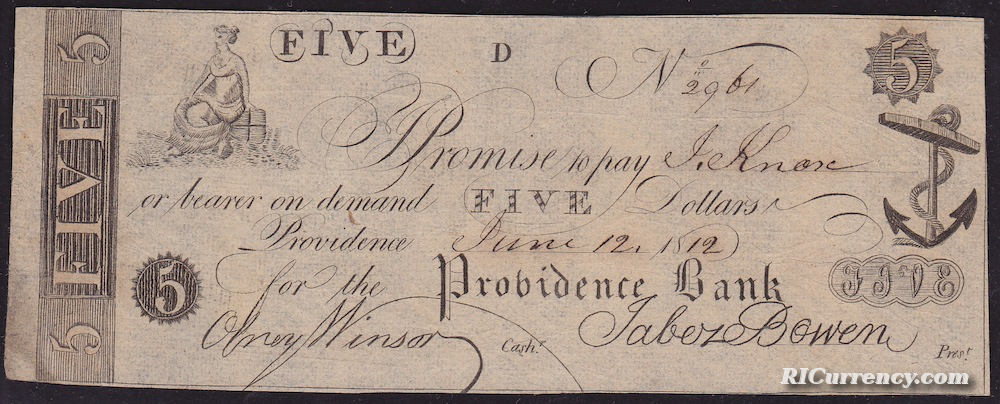 5 FIVE 5
FIVE D No 2961 5
Promise to pay J. Knox
or bearer on demand FIVE Dollars
Providence June 12, 1812
5 for the Providence Bank FIVE
Olney Winsor Cashr Jabez Bowen Prest
RICurrency.com